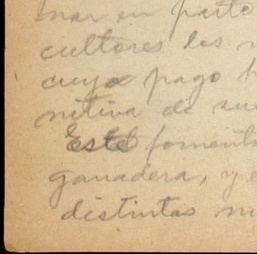 nar en parte
cultores les
cuyo pago
nitiva de su
Este foment
ganadera, y e
distintas